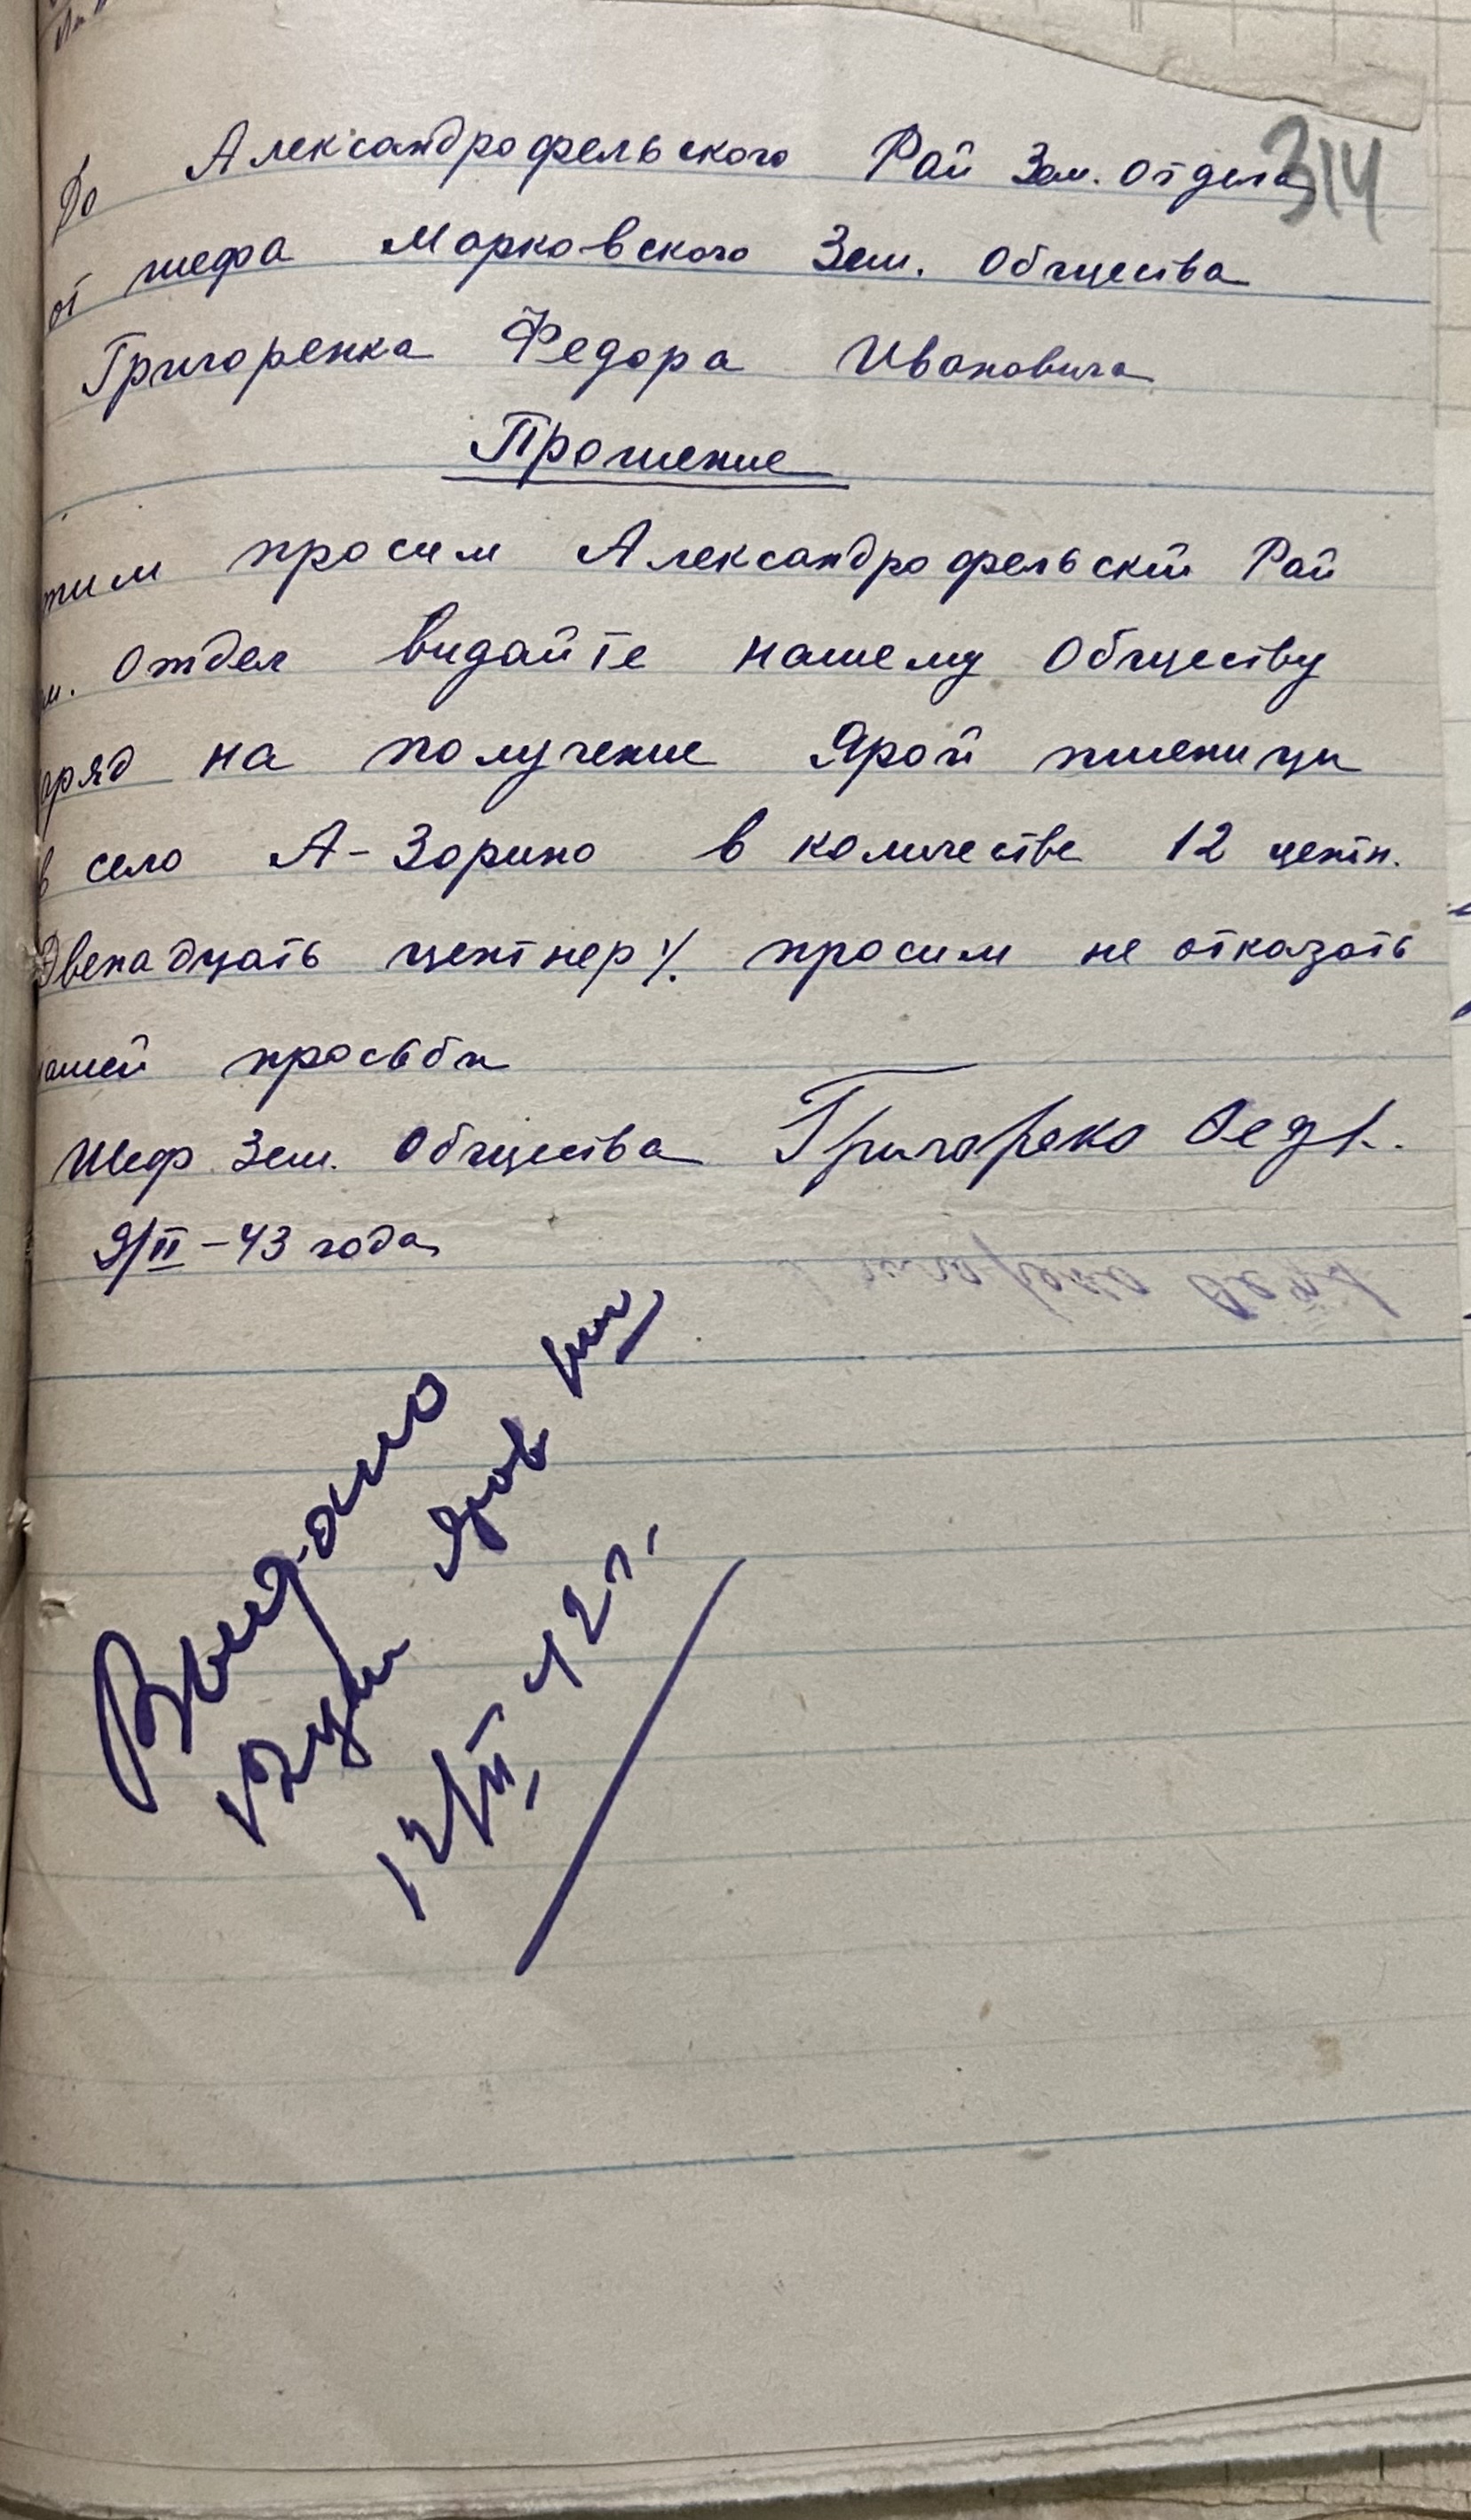 314
До Александрофельского Рай Зем. отдела
от шефа Марковского Зем. Общества
Григоренка Федора Ивановича
Прошение
тим просим Александрофельский Рай
м. Отдел видайте нашему Обществу
аряд на получение Ярой пшеници
в село А-Зорино в количестве 12 центн.
Двенадцать центнер%. просим не отказать
ашей просьби
Шеф Зем. Общества Григоренко Федр.
9/II-43 года
Выдано
12 цен Яров пш
12/II 42 г.